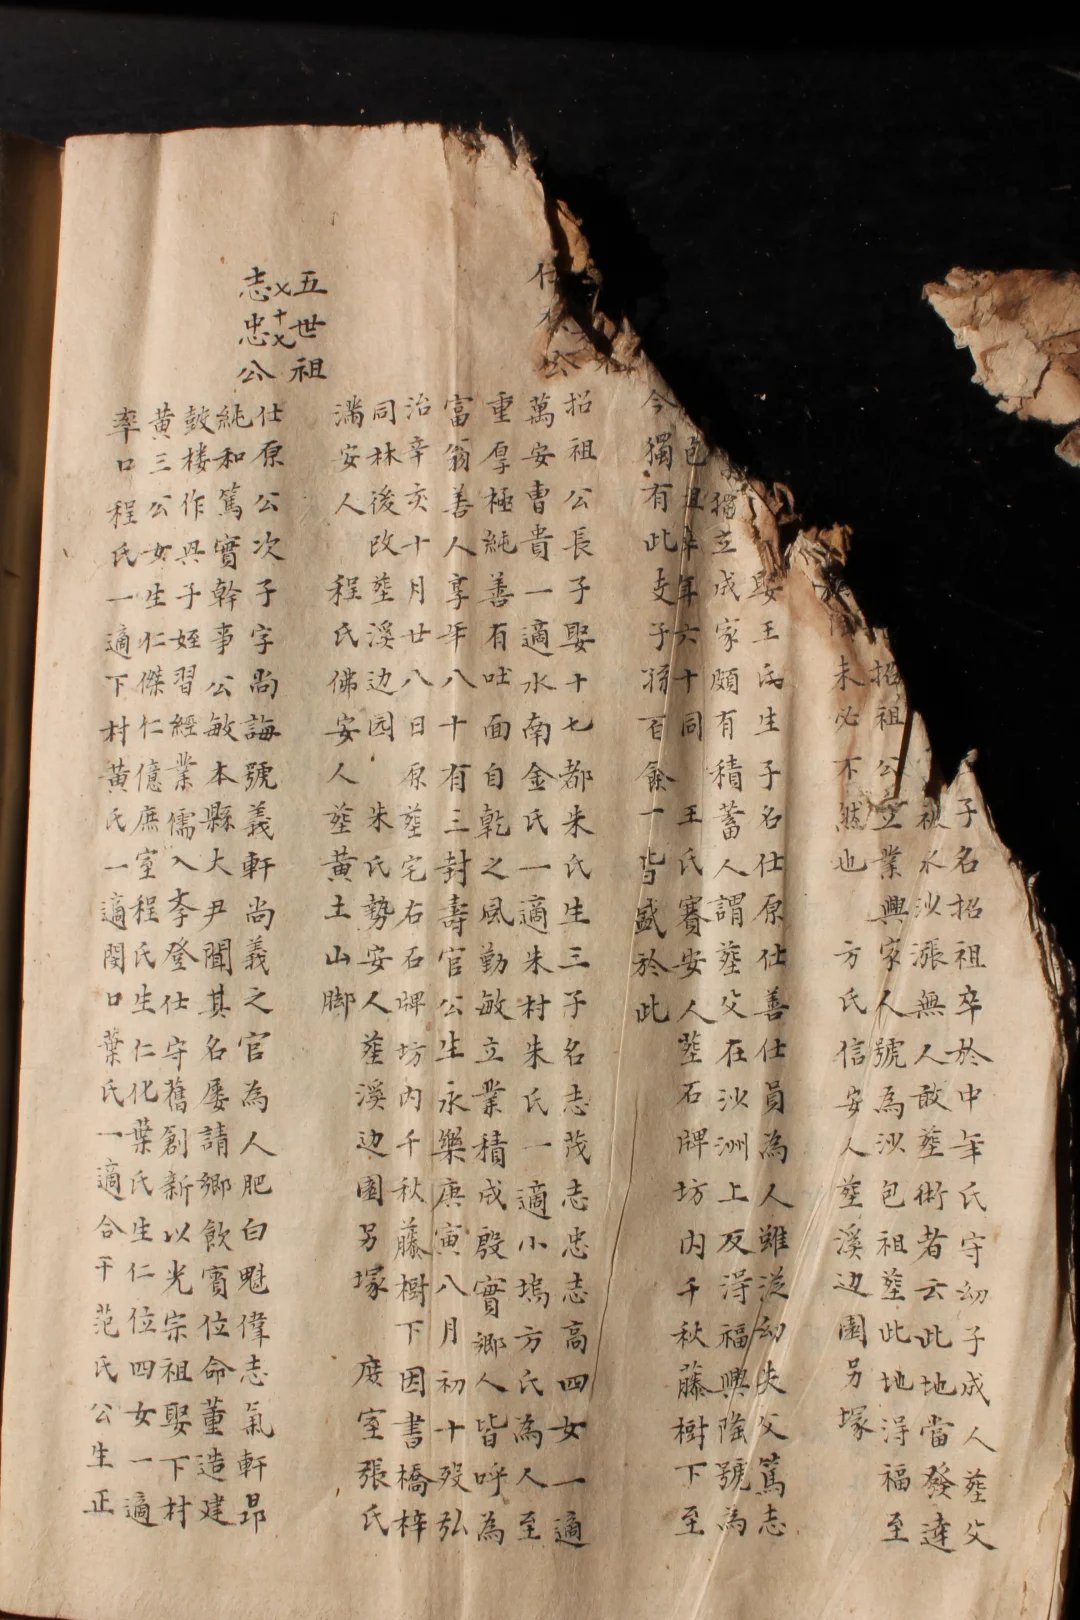 子名招祖卒於中年氏守幼子成人塟父
被水沙漲無人敢塟術者云此地當發達
招祖公立業興家人號為沙包祖塟此地淂福至
未必不然也 方氏信安人塟溪边園另塚
娶王氏生子名仕原仕善仕員為人雖從幼失父篤志
獨立成家頗有積蓄人謂塟父在沙洲上反淂福興隆號為
包祖卒年六十同 王氏賽安人塟石牌坊内千秋藤樹下至
今獨有此支子孫百餘一皆盛於此
仕
公
招祖公長子娶十七都朱氏生三子名志茂志忠志高四女一適
萬安曹貴一適水南金氏一適朱村朱氏一適小塢方氏為人至
重厚極純善有吐面自乾之風勤敏立業積成殷實鄉人皆呼為
富翁善人享年八十有三封壽官公生永樂庚寅八月初十歿弘
治辛亥十月廿八日原塟宅右石牌坊内千秋藤樹下因書橋梓
同林後改塟溪边园 朱氏勢安人塟溪边園另塚 庻室張氏
滿安人 程氏佛安人塟黄土山脚
五世祖
志忠公
仕原公次子字尚誨號義軒尚義之官為人肥白魁偉志氣軒昂
純和篤實幹事公敏本縣大尹聞其名屡請鄉飲賓位命董造建
鼓楼作興子姪習經業儒入李登仕守舊創新以光宗祖娶下村
黄三公女生仁傑仁億庶室程氏生仁化葉氏生仁位四女一適
率口程氏一適下村黄氏一適閔口葉氏一適合干范氏公生正